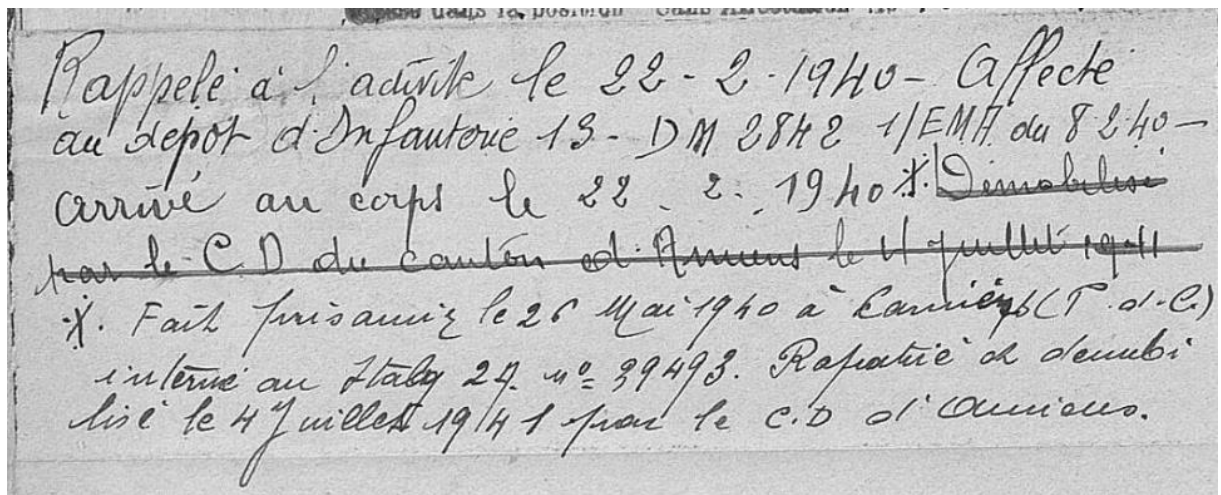 dans la position sans
Rappelé à l'activité le 22 - 2 - 1940 - Affecté
au depôt d'Infanterie 13 - DM 2842 1/EMA du 8 2 40 -
arrivé au corps le 22 . 2 . 1940 .X. Démobilisé
par le C.D du canton d'Amiens le 4 juillet 1941
.X. Fait prisonnier le 26 Mai 1940 à Camiers (P. d. C.)
interné au Stalag 2A. nº 39493. Rapatrié et demobi
lisé le 4 Juillet 1941 par le C.D d'Amiens.